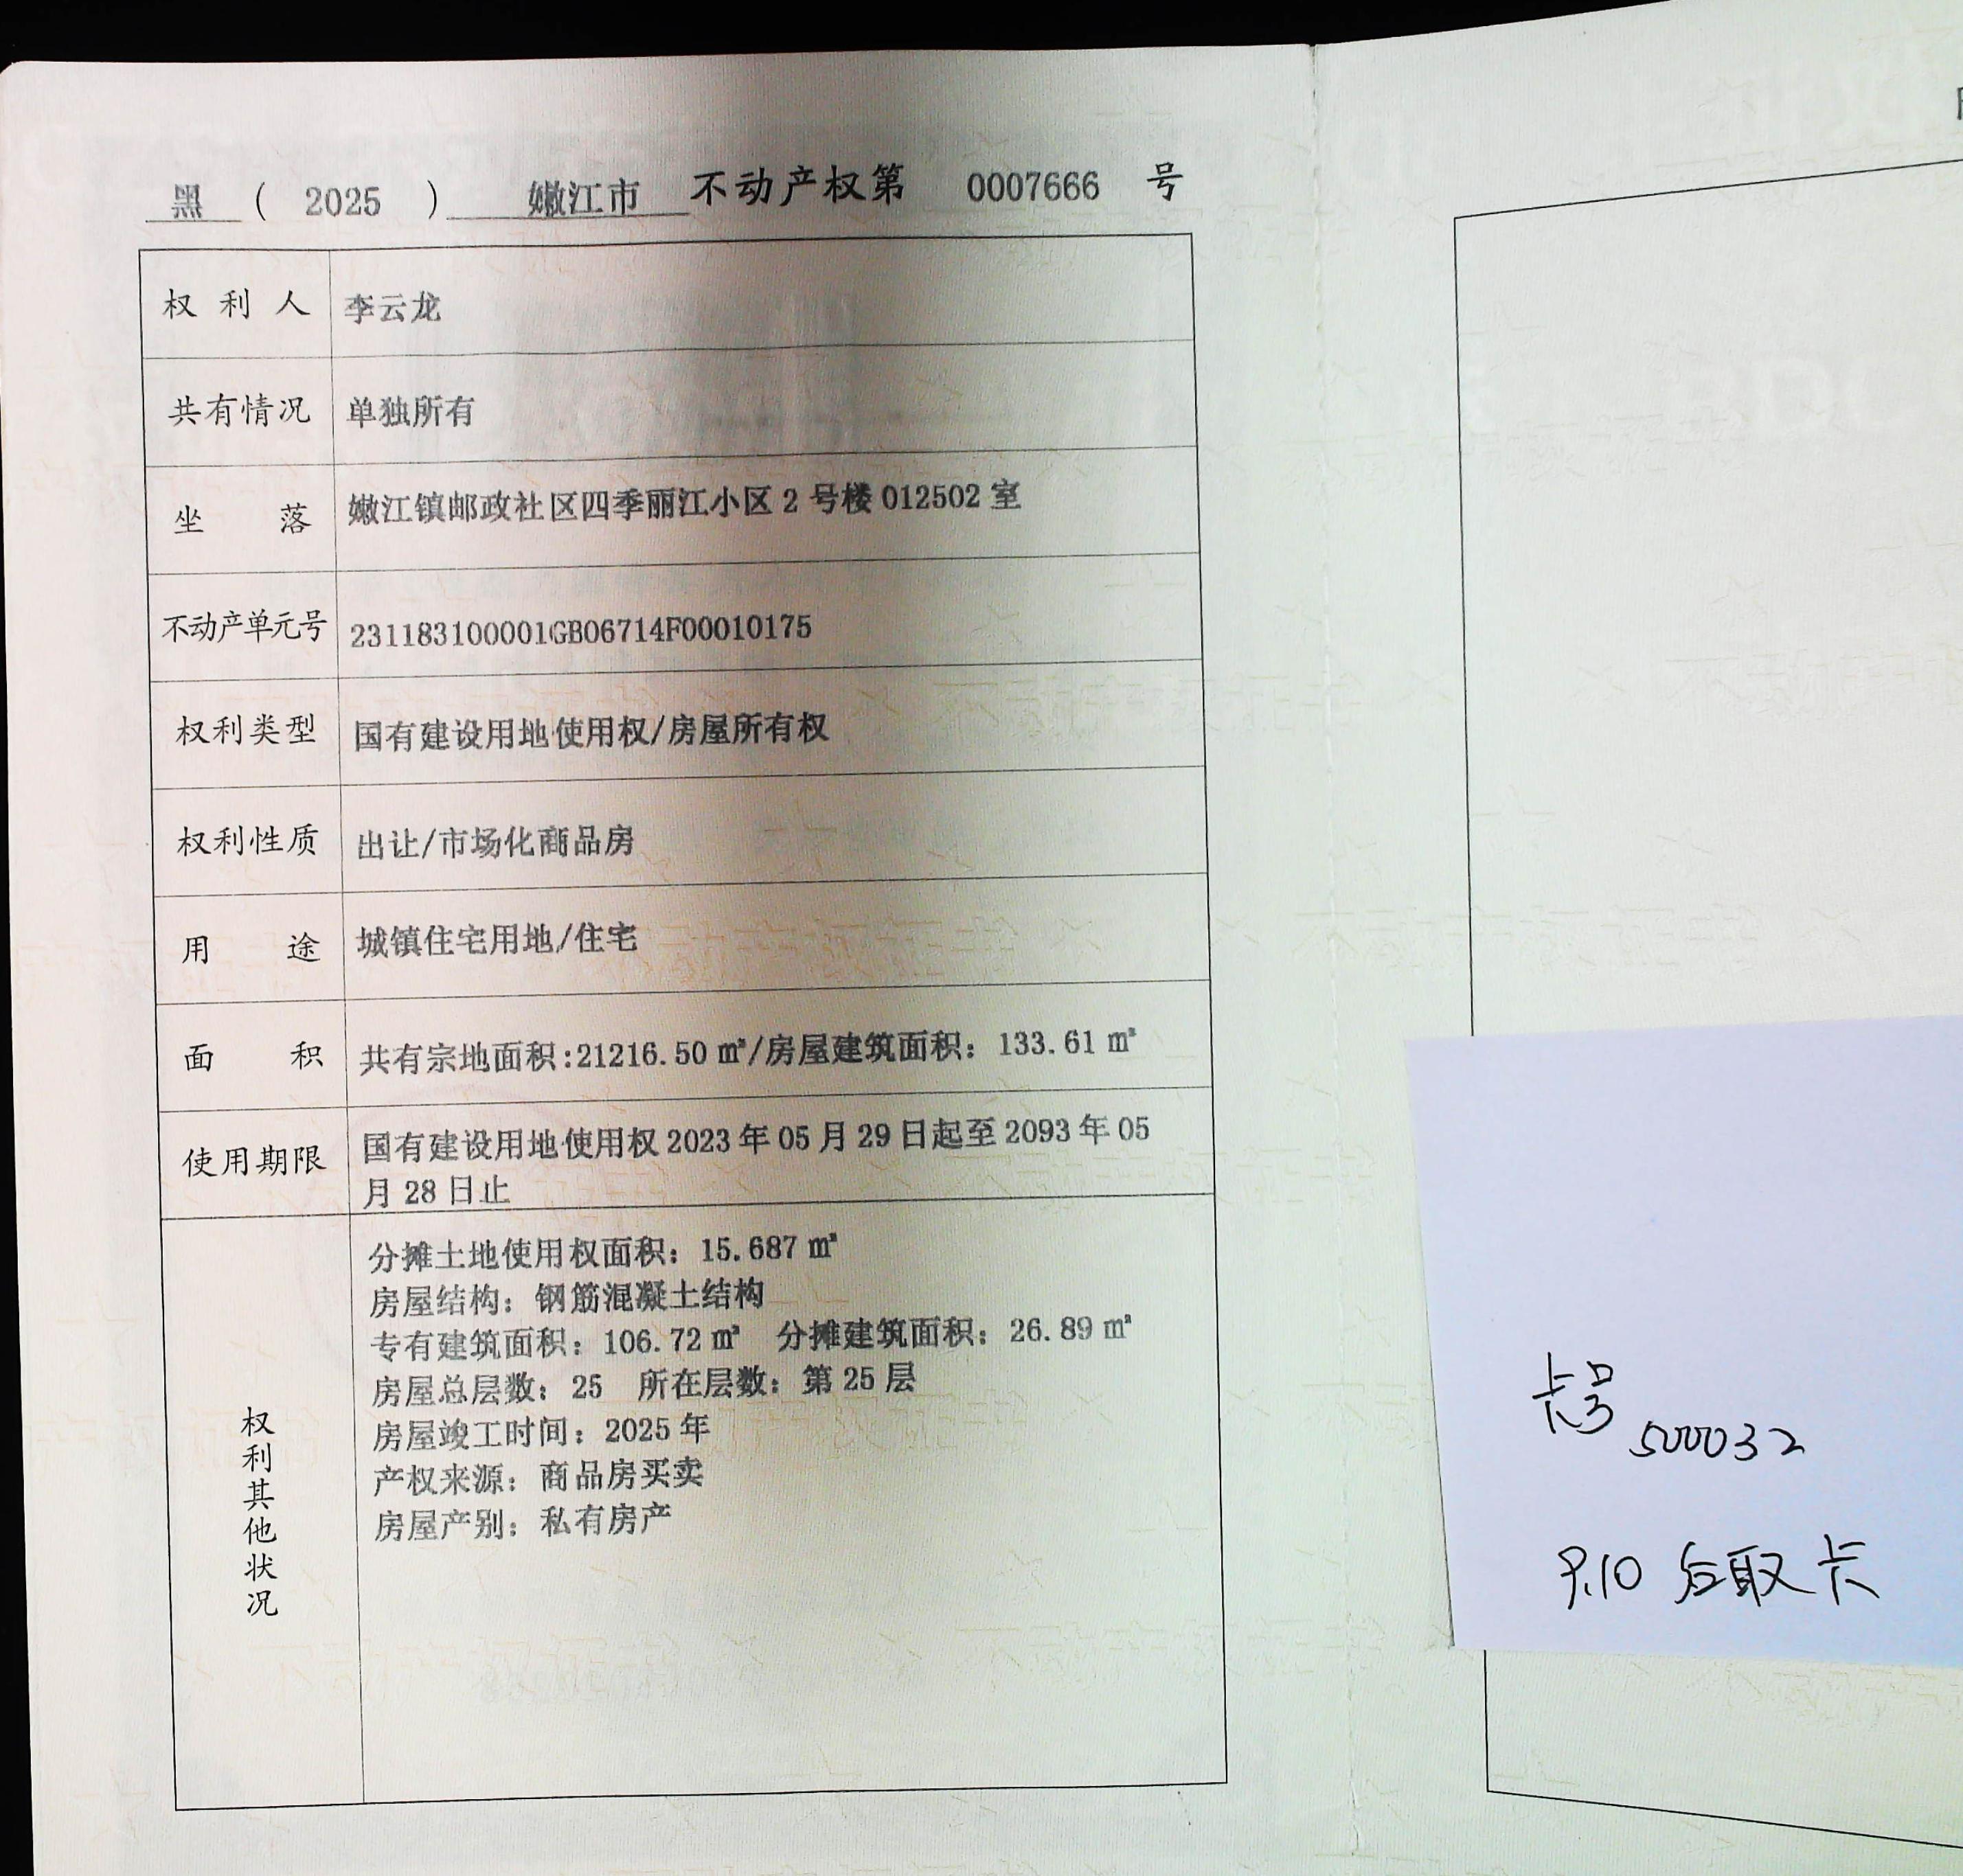 黑 ( 2025 ) 嫩江市 不动产权第 0007666 号
权利人 李云龙
共有情况 单独所有
坐落 嫩江镇邮政社区四季丽江小区 2 号楼 012502 室
不动产单元号 231183100001GB06714F00010175
权利类型 国有建设用地使用权/房屋所有权
权利性质 出让/市场化商品房
用途 城镇住宅用地/住宅
面积 共有宗地面积:21216.50 ㎡/房屋建筑面积: 133.61 ㎡
使用期限 国有建设用地使用权 2023 年 05 月 29 日起至 2093 年 05
月 28 日止
权利其他状况
分摊土地使用权面积: 15.687 ㎡
房屋结构: 钢筋混凝土结构
专有建筑面积: 106.72 ㎡ 分摊建筑面积: 26.89 ㎡
房屋总层数: 25 所在层数: 第 25 层
房屋竣工时间: 2025 年
产权来源: 商品房买卖
房屋产别: 私有房产
卡号
500032
9.10 后取卡